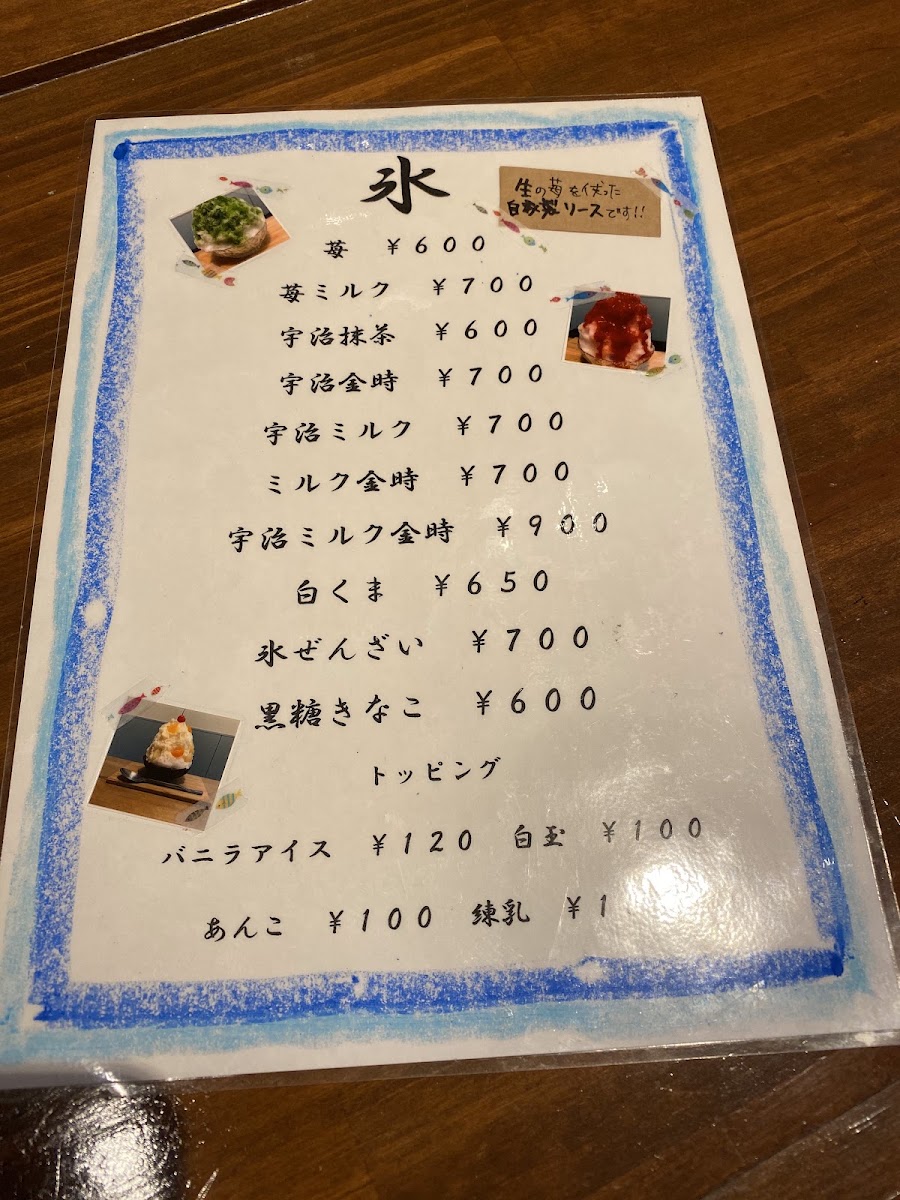 氷
生の苺を使った
自家製ソースです!!
苺 ￥600
苺ミルク ￥700
宇治抹茶 ￥600
宇治金時 ￥700
宇治ミルク ￥700
ミルク金時 ￥700
宇治ミルク金時 ￥900
白くま ￥650
氷ぜんざい ￥700
黒糖きなこ ￥600
トッピング
バニラアイス ￥120 白玉 ￥100
あんこ ￥100 練乳